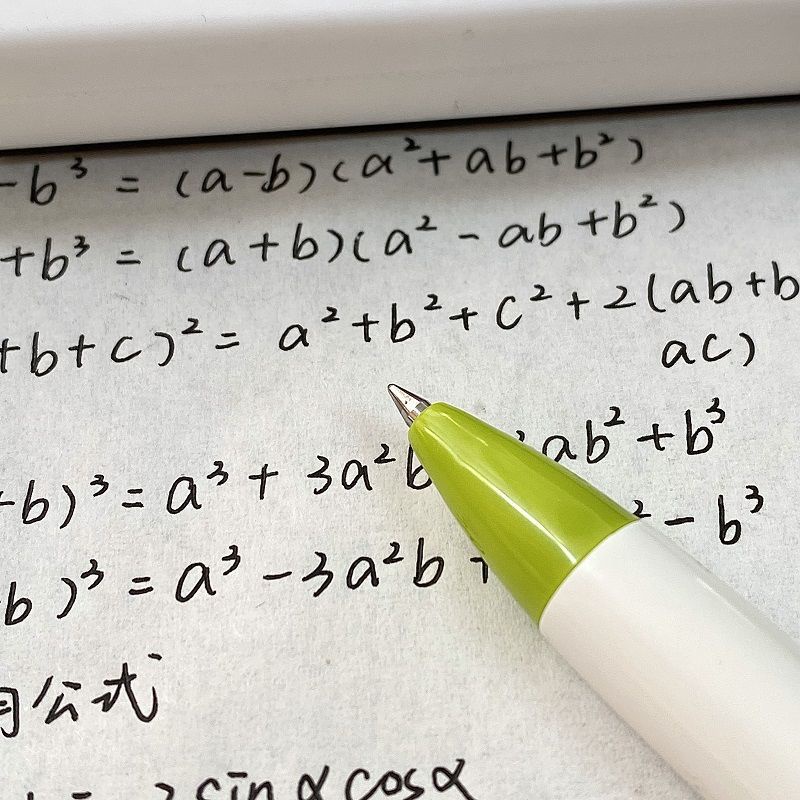 -b³ = (a-b)(a²+ab+b²)
+b³ = (a+b)(a²-ab+b²)
+b+c)² = a²+b²+c²+2(ab+b
ac)
+b)³ = a³+3a²b ab²+b³
b)³ = a³-3a²b + ² - b³
公式
sin α cos α